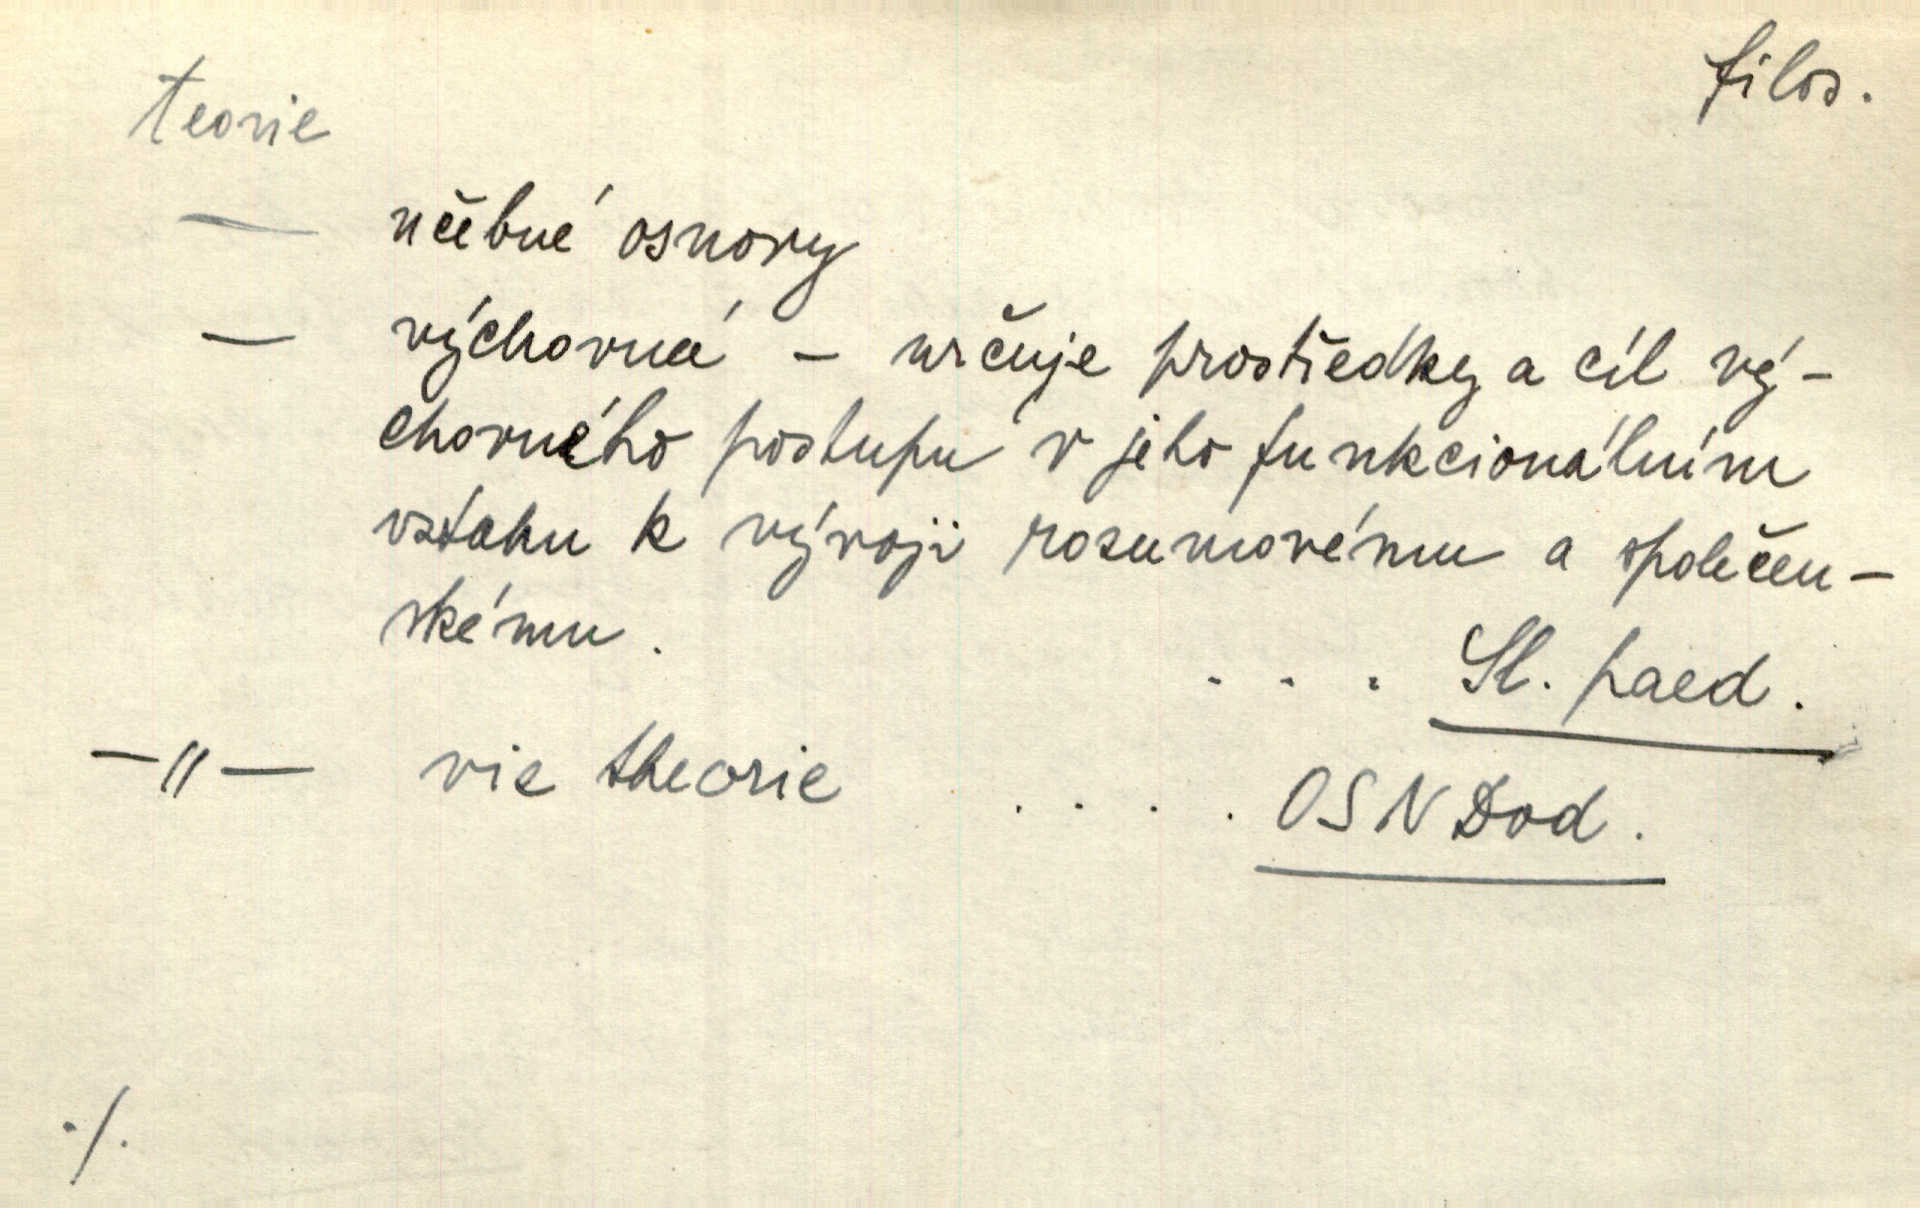 filos.
teorie
— učebné osnovy
— výchovná – určuje prostředky a cíl vý-
chovného postupu v jeho funkcionálním
vztahu k vývoji rozumovému a společen-
skému.
. . . Sl. paed.
—〃— viz theorie . . . . OSN Dod.
./.